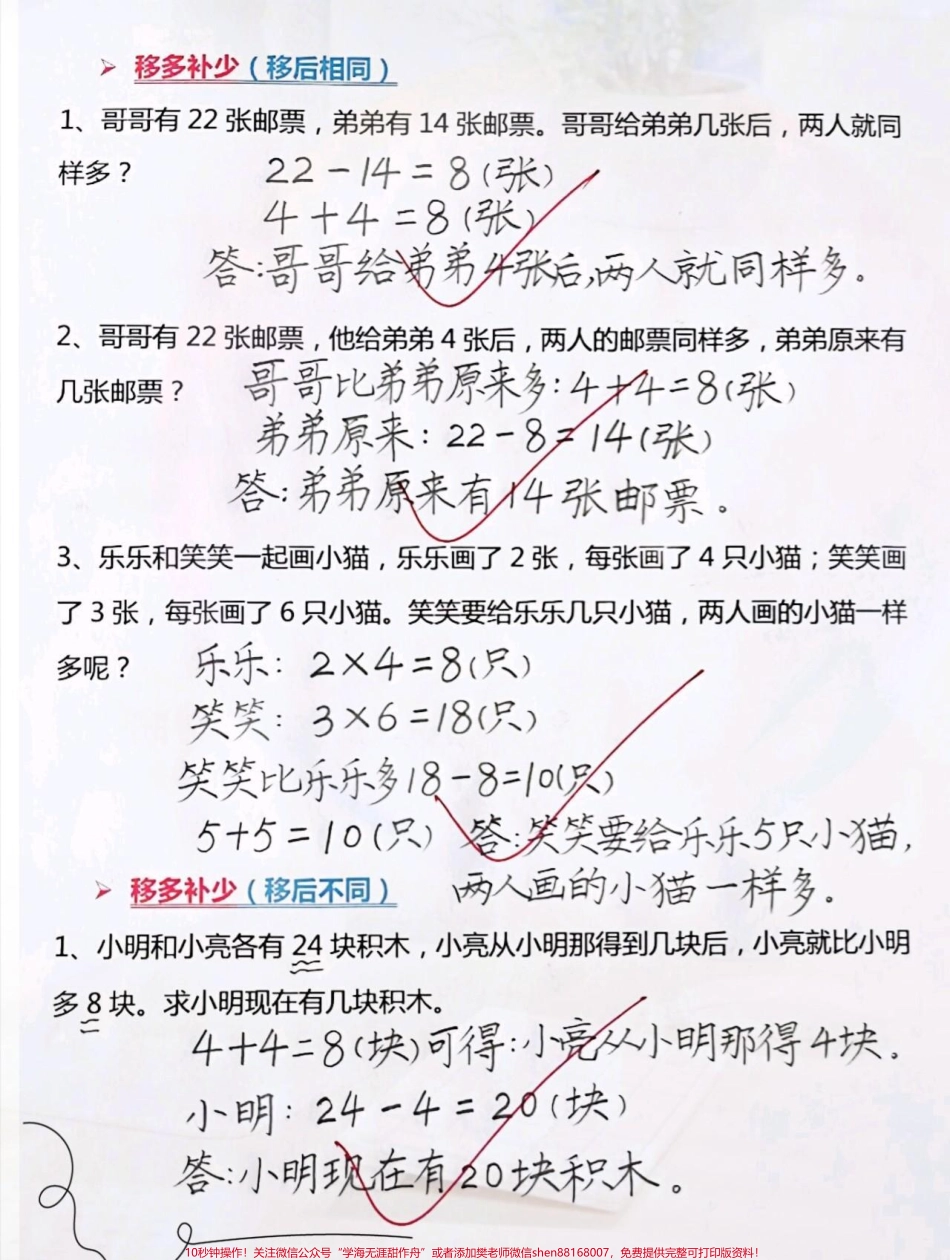 ➢ 移多补少（移后相同）
1、哥哥有 22 张邮票，弟弟有 14 张邮票。哥哥给弟弟几张后，两人就同
样多？
22－14＝8(张)
4＋4＝8(张)
答:哥哥给弟弟4张后,两人就同样多。
2、哥哥有 22 张邮票，他给弟弟 4 张后，两人的邮票同样多，弟弟原来有
几张邮票？
哥哥比弟弟原来多:4+4=8(张)
弟弟原来: 22－8=14(张)
答:弟弟原来有14张邮票。
3、乐乐和笑笑一起画小猫，乐乐画了 2 张，每张画了 4 只小猫；笑笑画
了 3 张，每张画了 6 只小猫。笑笑要给乐乐几只小猫，两人画的小猫一样
多呢？
乐乐: 2×4=8(只)
笑笑: 3×6=18(只)
笑笑比乐乐多18－8=10(只)
5+5=10(只) 答:笑笑要给乐乐5只小猫,
两人画的小猫一样多。
➢ 移多补少（移后不同）
1、小明和小亮各有 24 块积木，小亮从小明那得到几块后，小亮就比小明
多 8 块。求小明现在有几块积木。
4+4=8(块)可得:小亮从小明那得4块。
小明: 24－4=20(块)
答:小明现在有20块积木。
10秒钟操作！关注微信公众号“学海无涯甜作舟”或者添加樊老师微信shen88168007，免费提供完整可打印版资料！